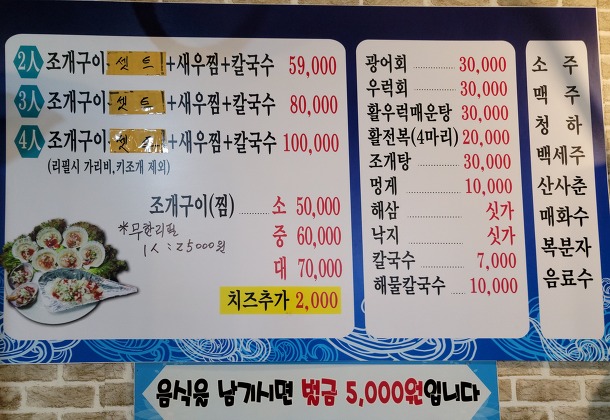 2人 조개구이 셋트 +새우찜+칼국수 59,000
3人 조개구이 셋트 +새우찜+칼국수 80,000
4人 조개구이 셋트 +새우찜+칼국수 100,000
(리필시 가리비,키조개 제외)
조개구이(찜) ........ 소 50,000
*무한리필 중 60,000
1人 : 25000원
대 70,000
치즈추가 2,000
광어회 ........ 30,000
우럭회 ........ 30,000
활우럭매운탕 30,000
활전복(4마리) 20,000
조개탕 ........ 30,000
멍게 ........ 10,000
해삼 ........ 싯가
낙지 ........ 싯가
칼국수 ........ 7,000
해물칼국수 .... 10,000
소 주
맥 주
청 하
백세주
산사춘
매화수
복분자
음료수
음식을 남기시면 벌금 5,000원입니다